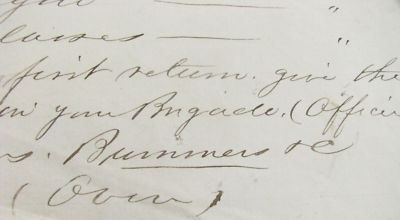 classes — "
first return. give the
in your Brigade. (Officer
s. Bummers &c
(Over)